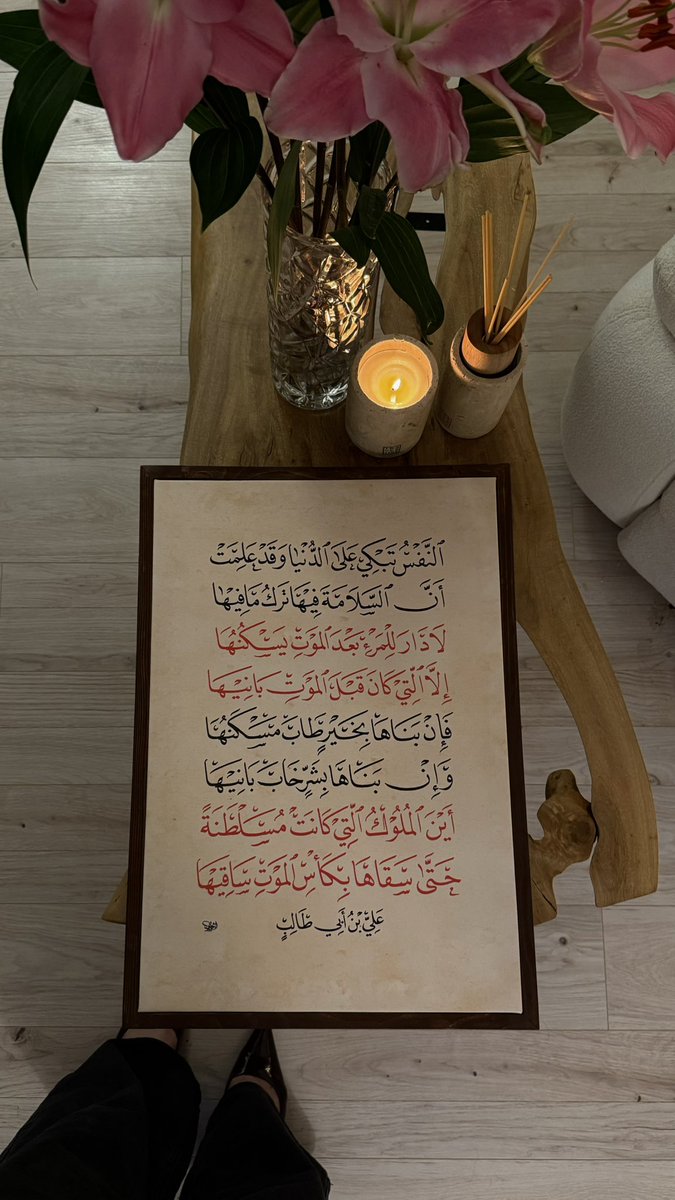 اَلنَّفْسُ تَبْكِي عَلَى الدُّنْيَا وَقَدْ عَلِمَتْ
أَنَّ السَّلَامَةَ فِيهَا تَرْكُ مَافِيهَا
لَا دَارَ لِلْمَرْءِ بَعْدَ الْمَوْتِ يَسْكُنُهَا
إِلَّا الَّتِي كَانَ قَبْلَ الْمَوْتِ بَانِيهَا
فَإِنْ بَنَاهَا بِخَيْرٍ طَابَ مَسْكَنُهَا
وَإِنْ بَنَاهَا بِشَرٍّ خَابَ بَانِيهَا
أَيْنَ الْمُلُوكُ الَّتِي كَانَتْ مُسَلْطَنَةً
حَتَّى سَقَاهَا بِكَأْسِ الْمَوْتِ سَاقِيهَا
عَلِيُّ بْنُ أَبِي طَالِبٍ